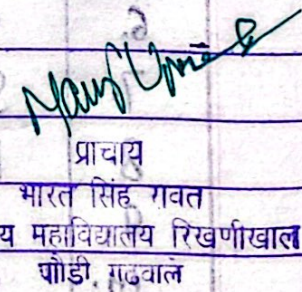 प्राचाय
भारत सिंह रावत
य महाविद्यालय रिखणीखाल
पौडी गढवाल